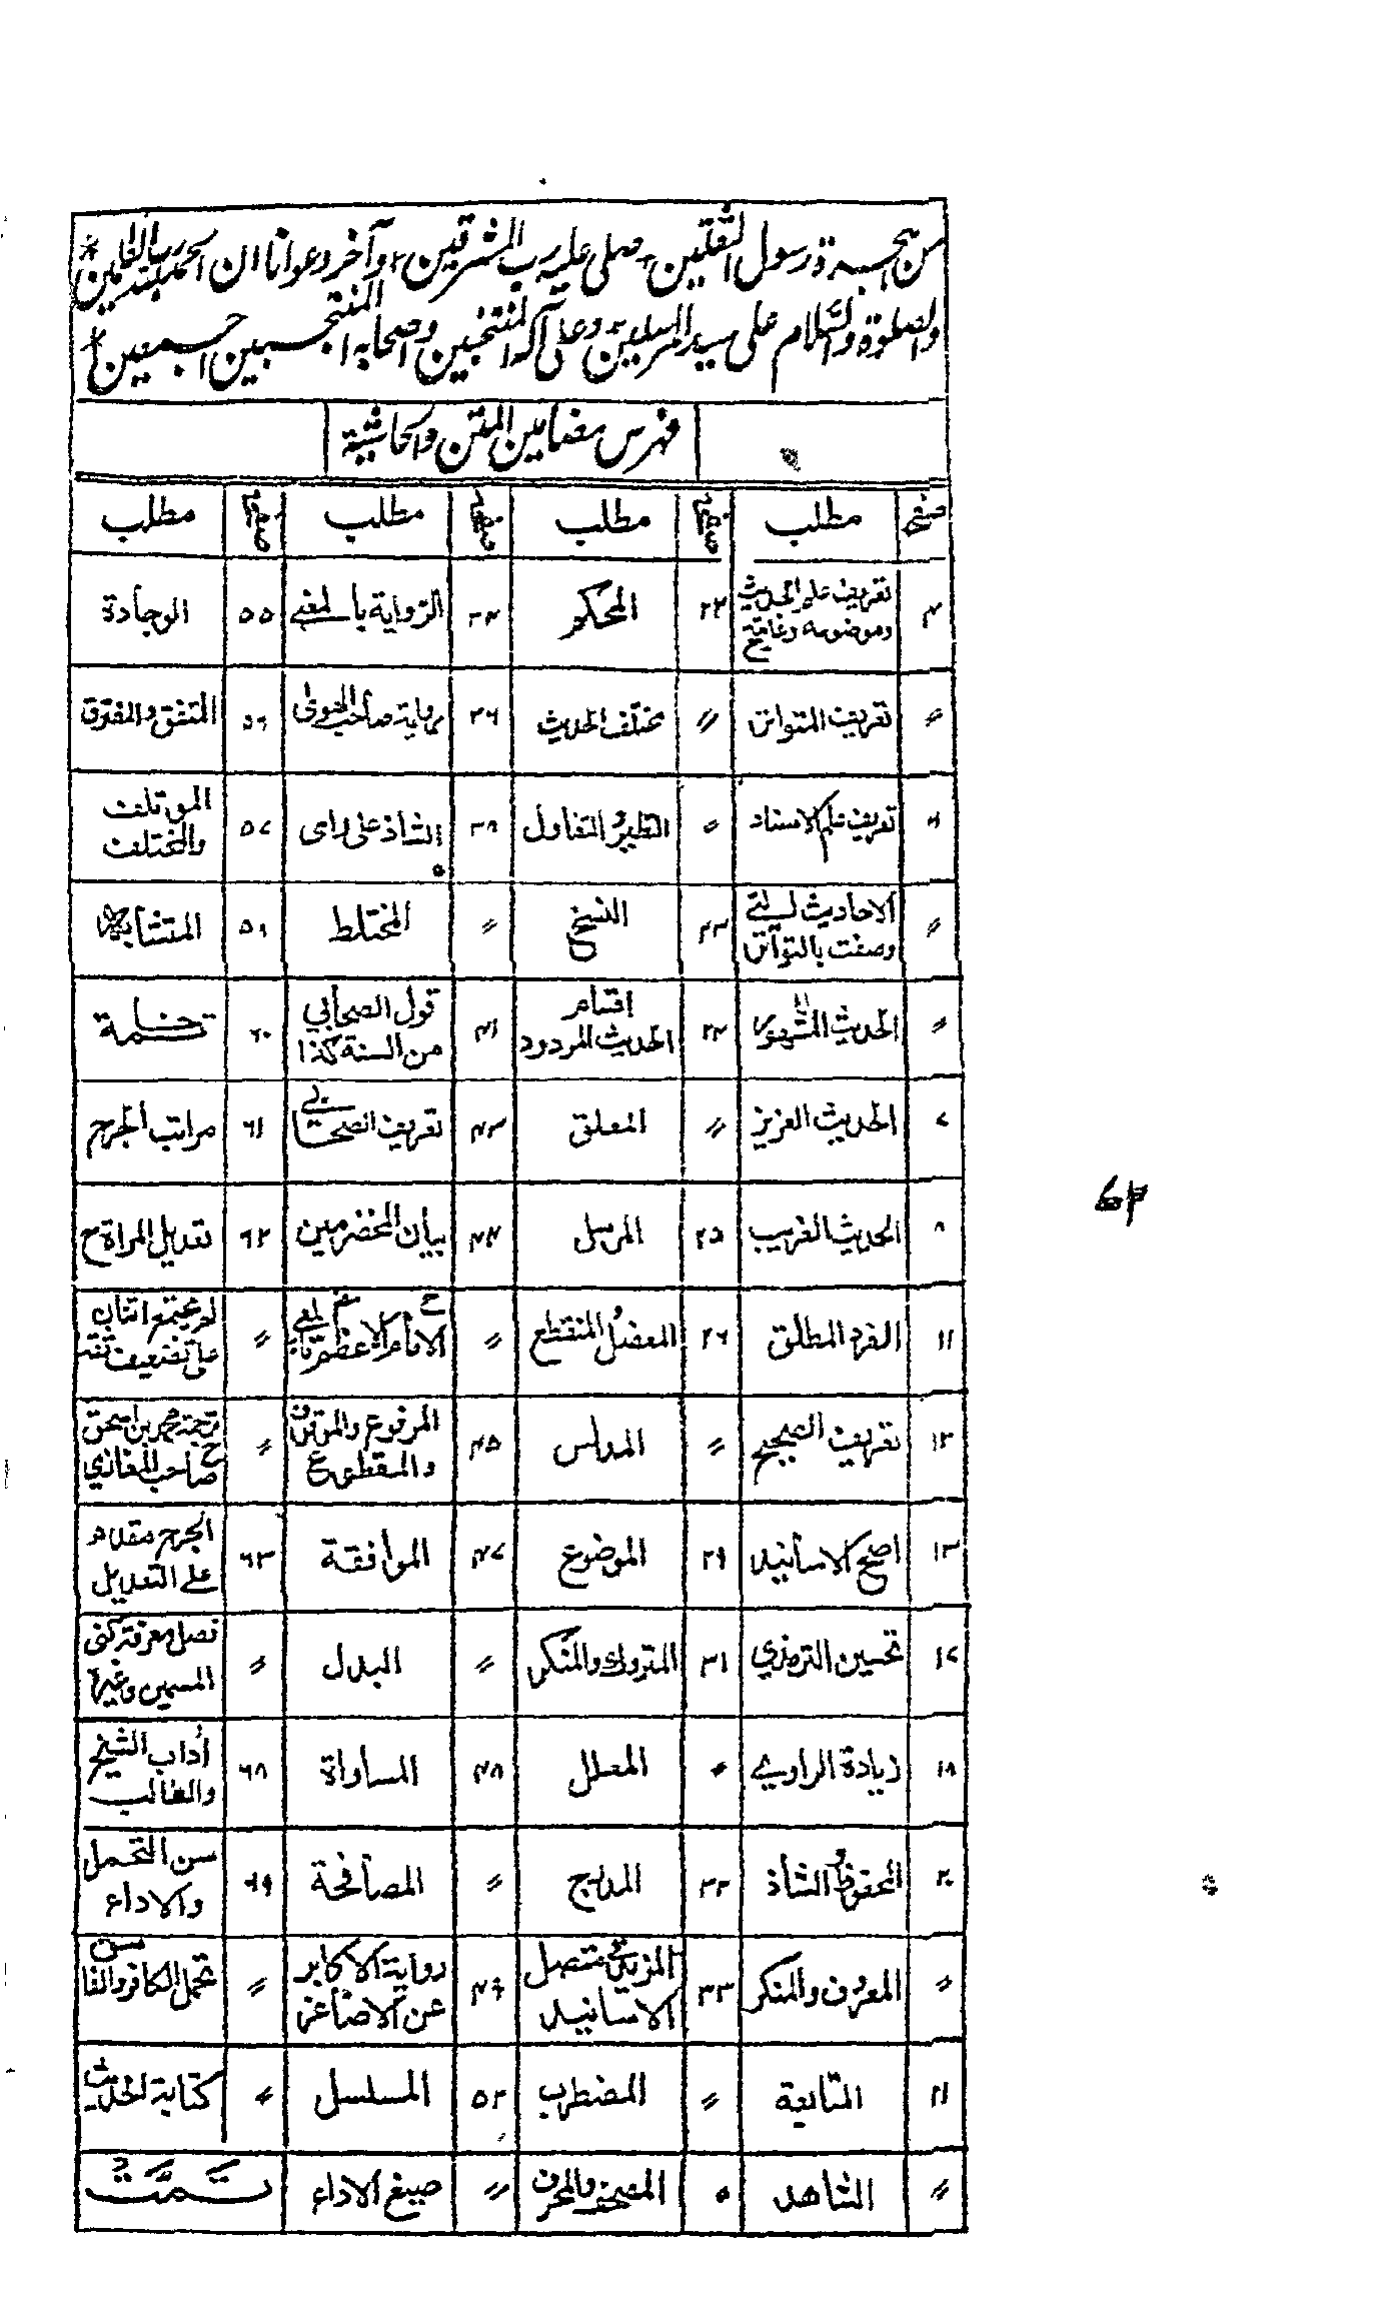 من بحبسه رسول الثقلين صلى عليه رب المشرقين وآخر دعوانا ان الحمد لله رب العالمين
والصلوة والسلام على سيد المرسلين وعلى آله المنتخبين واصحابه المنتجبين اجمعين
فهرس مضامين المتن والحاشية
صفحه مطلب صفحه مطلب صفحه مطلب صفحه مطلب
۴ تعريف علم الحديث وموضوعه وغايته ۲۲ المحكم ۳۴ الرواية بالمعنى ۵۵ الوجادة
〃 تعريف المتواتر 〃 مختلف الحديث ۳۶ رواية صاحب الهوى ۵۶ المتفق والمفترق
۶ تعريف علم الاسناد 〃 التطير والتفاول ۳۸ الشاذ على راى ۵۷ الموتلف والمختلف
〃 الاحاديث التي وصفت بالتواتر ۲۳ النسخ 〃 المختلط ۵۹ المتشابه
〃 الحديث المشهور ۲۴ اقسام الحديث المردود ۴۱ قول الصحابي من السنة كذا ۶۰ خاتمة
۷ الحديث العزيز 〃 المعلق ۴۳ تعريف الصحابي ۶۱ مراتب الجرح
۸ الحديث الغريب ۲۵ المرسل ۴۴ بيان المخضرمين ۶۲ تعديل المراة ح
۱۱ الفرد المطلق ۲۶ المعضل والمنقطع 〃 الامام الاعظم تابعي 〃 لم يجتمع اثنان على تضعيف ثقة
۱۲ تعريف الصحيح 〃 المدلس ۴۵ المرفوع والموقوف والمقطوع 〃 ترجمة محمد بن اسحق صاحب المغازي ح
۱۳ اصح الاسانيد ۲۹ الموضوع ۴۷ الموافقة ۶۳ الجرح مقدم على التعديل
۱۷ تحسين الترمذي ۳۱ المتروك والمنكر 〃 البدل 〃 فصل معرفة كنى المسمين وغيرها
۱۸ زيادة الراوي 〃 المعلل ۴۸ المساواة ۶۸ أداب الشيخ والطالب
۲۰ المحفوظ والشاذ ۳۲ المدرج 〃 المصافحة ۶۹ سن التحمل والاداء
〃 المعروف والمنكر ۳۳ المزيد في متصل الاسانيد ۴۹ رواية الاكابر عن الاصاغر 〃 تحمل الكافر والفاسق
۲۱ المتابعة 〃 المضطرب ۵۲ المسلسل 〃 كتابة الحديث
〃 الشاهد 〃 المصحف والمحرف 〃 صيغ الاداء تمت